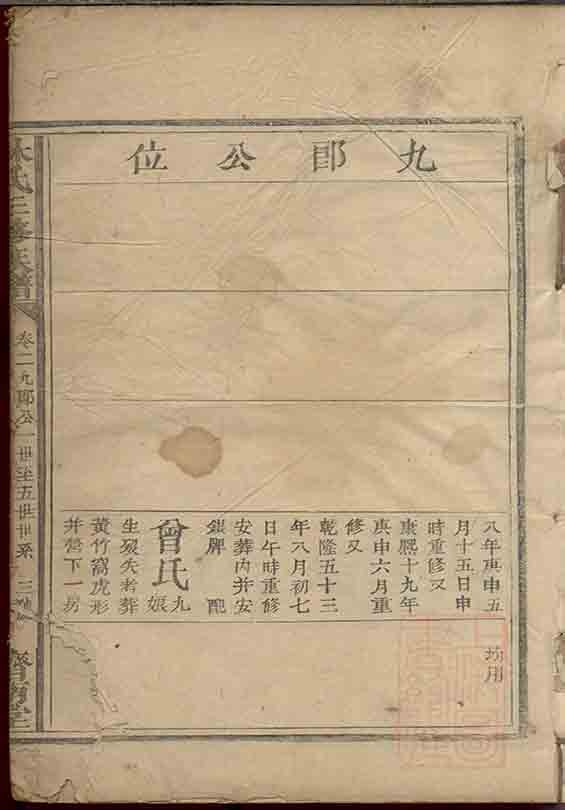 九郎公位
八年庚申五
月十五日申
時重修又
康熙十九年
庚申六月重
修又
乾隆五十三
年八月初七
日午時重修
安葬內并安
銀牌 配
曾氏九娘
生歿失考葬
黃竹窩虎形
井營下一房
用
林氏三修族譜
卷二九郎公一世至五世世系 三
濟南堂